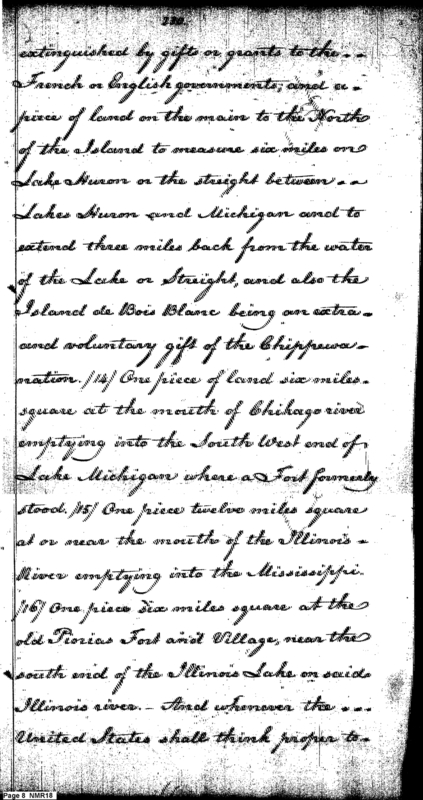 extinguished by gifts or grants to the - -
French or English governments; and a -
piece of land on the main to the North
of the Island to measure six miles on
Lake Huron or the streight between - -
Lakes Huron and Michigan and to
extend three miles back from the water
of the Lake or Streight, and also the
Island de Bois Blanc being an extra -
and voluntary gift of the Chippewa -
nation. /14/ One piece of land six miles -
square at the mouth of Chikago river
emptying into the South West end of
Lake Michigan where a Fort formerly
stood. /15/ One piece twelve miles square
at or near the mouth of the Illinois -
River emptying into the Mississippi.
/16/ One piece six miles square at the
old Piorias Fort and Village, near the
south end of the Illinois Lake on said
Illinois river. - And whenever the - - -
United States shall think proper to -
Page 8 NMR18